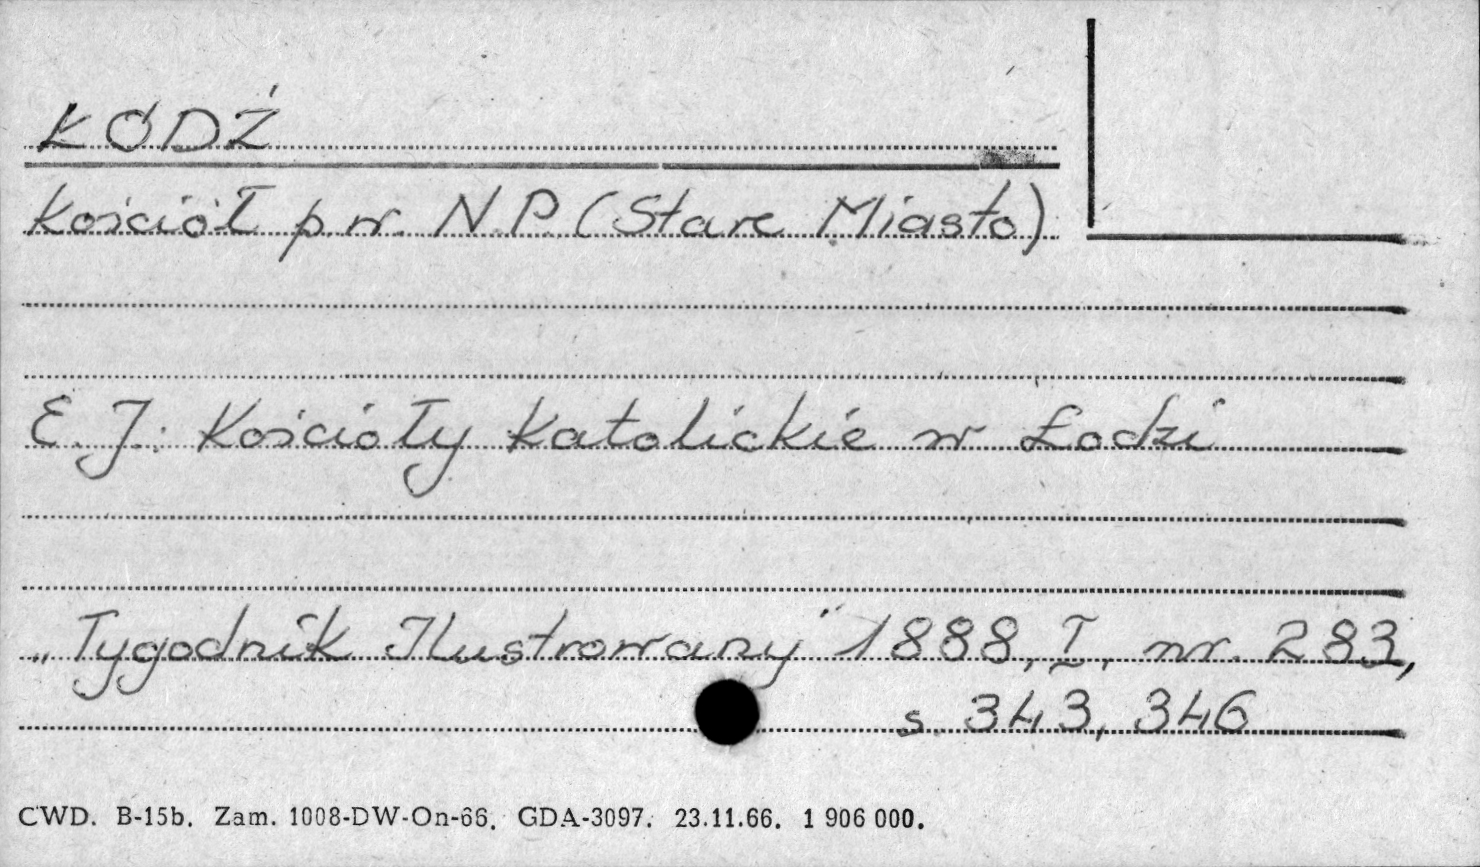 ŁÓDŹ
Kościół p.w. N.P. (Stare Miasto)
E. J.: Kościoły Katolickie w Łodzi
„Tygodnik Ilustrowany" 1888, I, nr. 283,
s. 343, 346
CWD. B-15b. Zam. 1008-DW-On-66. GDA-3097. 23.11.66. 1 906 000.